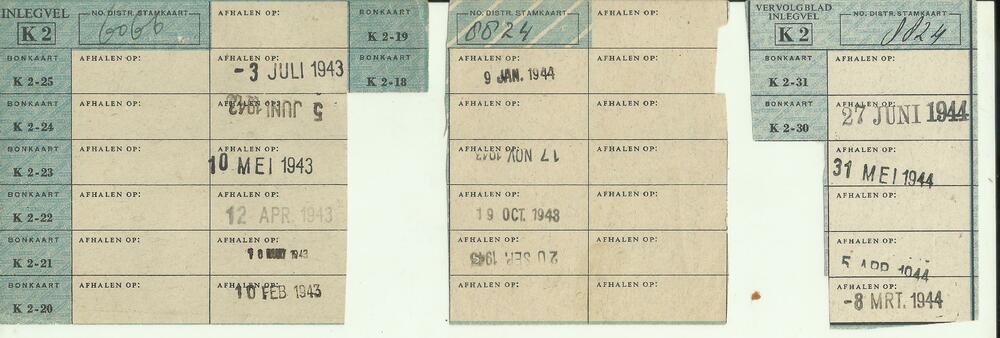 INLEGVEL
K 2
NO. DISTR. STAMKAART
6066
AFHALEN OP:
BONKAART
K 2-19
BONKAART
K 2-25
AFHALEN OP:
AFHALEN OP:
-3 JULI 1943
BONKAART
K 2-18
BONKAART
K 2-24
AFHALEN OP:
AFHALEN OP:
5 JUNI 1943
BONKAART
K 2-23
AFHALEN OP:
AFHALEN OP:
10 MEI 1943
BONKAART
K 2-22
AFHALEN OP:
AFHALEN OP:
12 APR. 1943
BONKAART
K 2-21
AFHALEN OP:
AFHALEN OP:
1943
BONKAART
K 2-20
AFHALEN OP:
AFHALEN OP:
10 FEB 1943
NO. DISTR. STAMKAART
8824
AFHALEN OP:
AFHALEN OP:
9 JAN. 1944
AFHALEN OP:
AFHALEN OP:
AFHALEN OP:
AFHALEN OP:
17 NOV 1943
AFHALEN OP:
AFHALEN OP:
19 OCT. 1943
AFHALEN OP:
AFHALEN OP:
20 SEP. 1943
AFHALEN OP:
AFHALEN OP:
AFHALEN OP:
VERVOLGBLAD
INLEGVEL
K 2
NO. DISTR. STAMKAART
8824
BONKAART
K 2-31
AFHALEN OP:
BONKAART
K 2-30
AFHALEN OP:
27 JUNI 1944
AFHALEN OP:
31 MEI 1944
AFHALEN OP:
AFHALEN OP:
5 APR 1944
AFHALEN OP:
-8 MRT. 1944